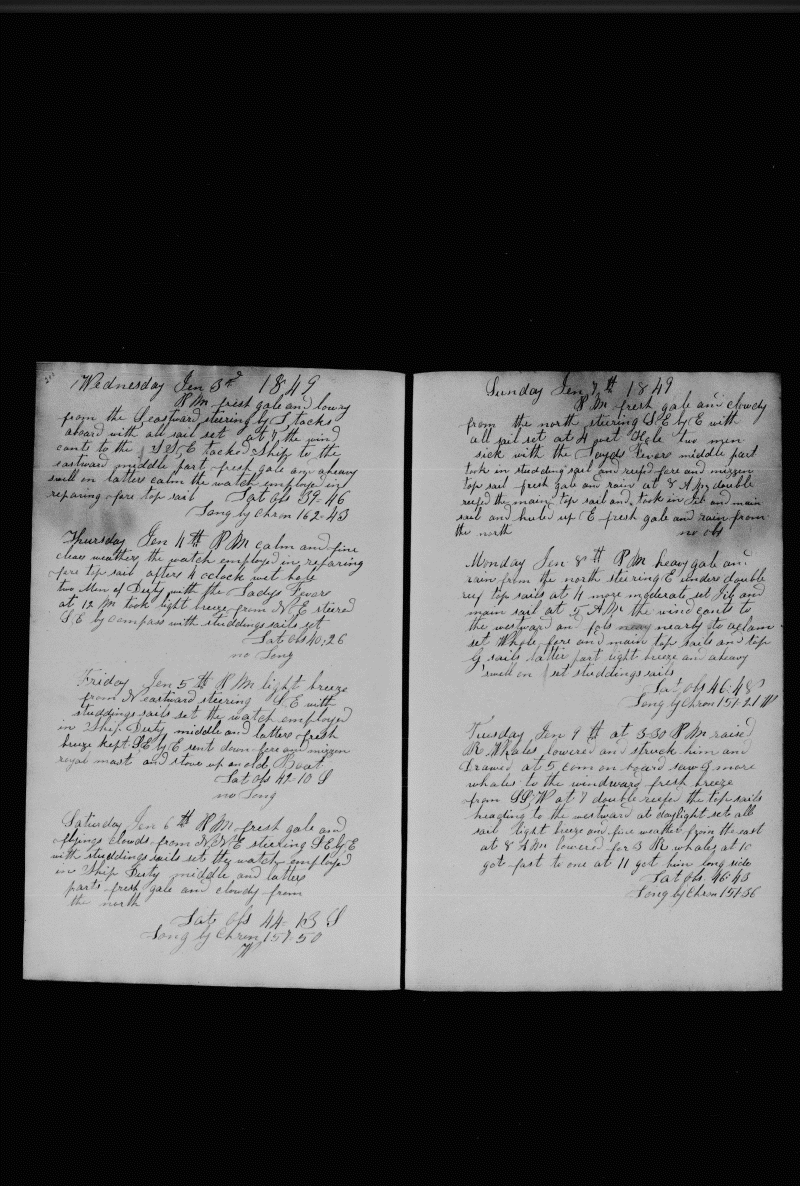 Wednesday Jen 3rd 1849
P M fresh gale and lowry
from the S eastward steering by S tacks
aboard with all sail set at 7 the wind
cants to the SSE tacked Ship to the
eastward middle part fresh gale and aheavy
swell on latter calm the watch employed in
repairing fore top sail Lat Obs 39-46
Long by Chron 162-43
Thursday Jen 4th P M calm and fine
clear weather the watch employed in repairing
fore top sail afters 4 oclock wet hole
two Men of Duty with the Ladys Fevers
at 12 M took light breeze from N E steered
S.E by compass with studdings sails set
Lat Obs 40-26
no Long
Friday Jen 5th P M light breeze
from N eastward steering S.E with
studdings sails set the watch employed
in Ship Duty middle and latters fresh
breeze kept SE by E sent down fore and mizzen
royal mast and stove up an old Boat
Lat Obs 42-10 S
no Long
Saturday Jen 6th P M fresh gale and
flyings clouds from N.N.E steering S.E by E
with studdings sails set the watch employed
in Ship Duty middle and latters
parts fresh gale and cloudy from
the north
Lat Obs 44-13 S
Long by Chron 157-50
W
Sunday Jen 7th 1849
P M fresh gale and clowdy
from the north steering S.E by E with
all sail set at 4 wet Hole two men
sick with the Fevers middle part
took in studding sail and reefd fore and mizzen
top sail fresh gale and rain at 8 A M double
reefd the main top sail and took in Jib and main
sail and huled up E fresh gale and rain from
the north no obs
Monday Jen 8th P M heavy gale and
rain from the north steering E unders double
reef top sails at 4 more moderate set Jib and
main sail at 5 A M the wind cants to
the westward and fols neay nearly to aclam
set Whole fore and main top sails and top
G sails latter part light breeze an aheavy
swell on set studdings sails
Lat Obs 46-48
Long by Chron 151-21 W
Tuesday Jen 9th at 3-30 P M raised
R Whales lowered an struck him and
Drawed at 5 com on board saw 3 more
whales to the windward fresh breeze
from SS,W at 7 double reefed the top sails
heading to the westward at daylight set all
sail light breeze and fine weather from the east
at 8 A M lowered for 3 R whales at 10
got fast to one at 11 got him long side
Lat Obs 46-43
Long by Chron 151-36